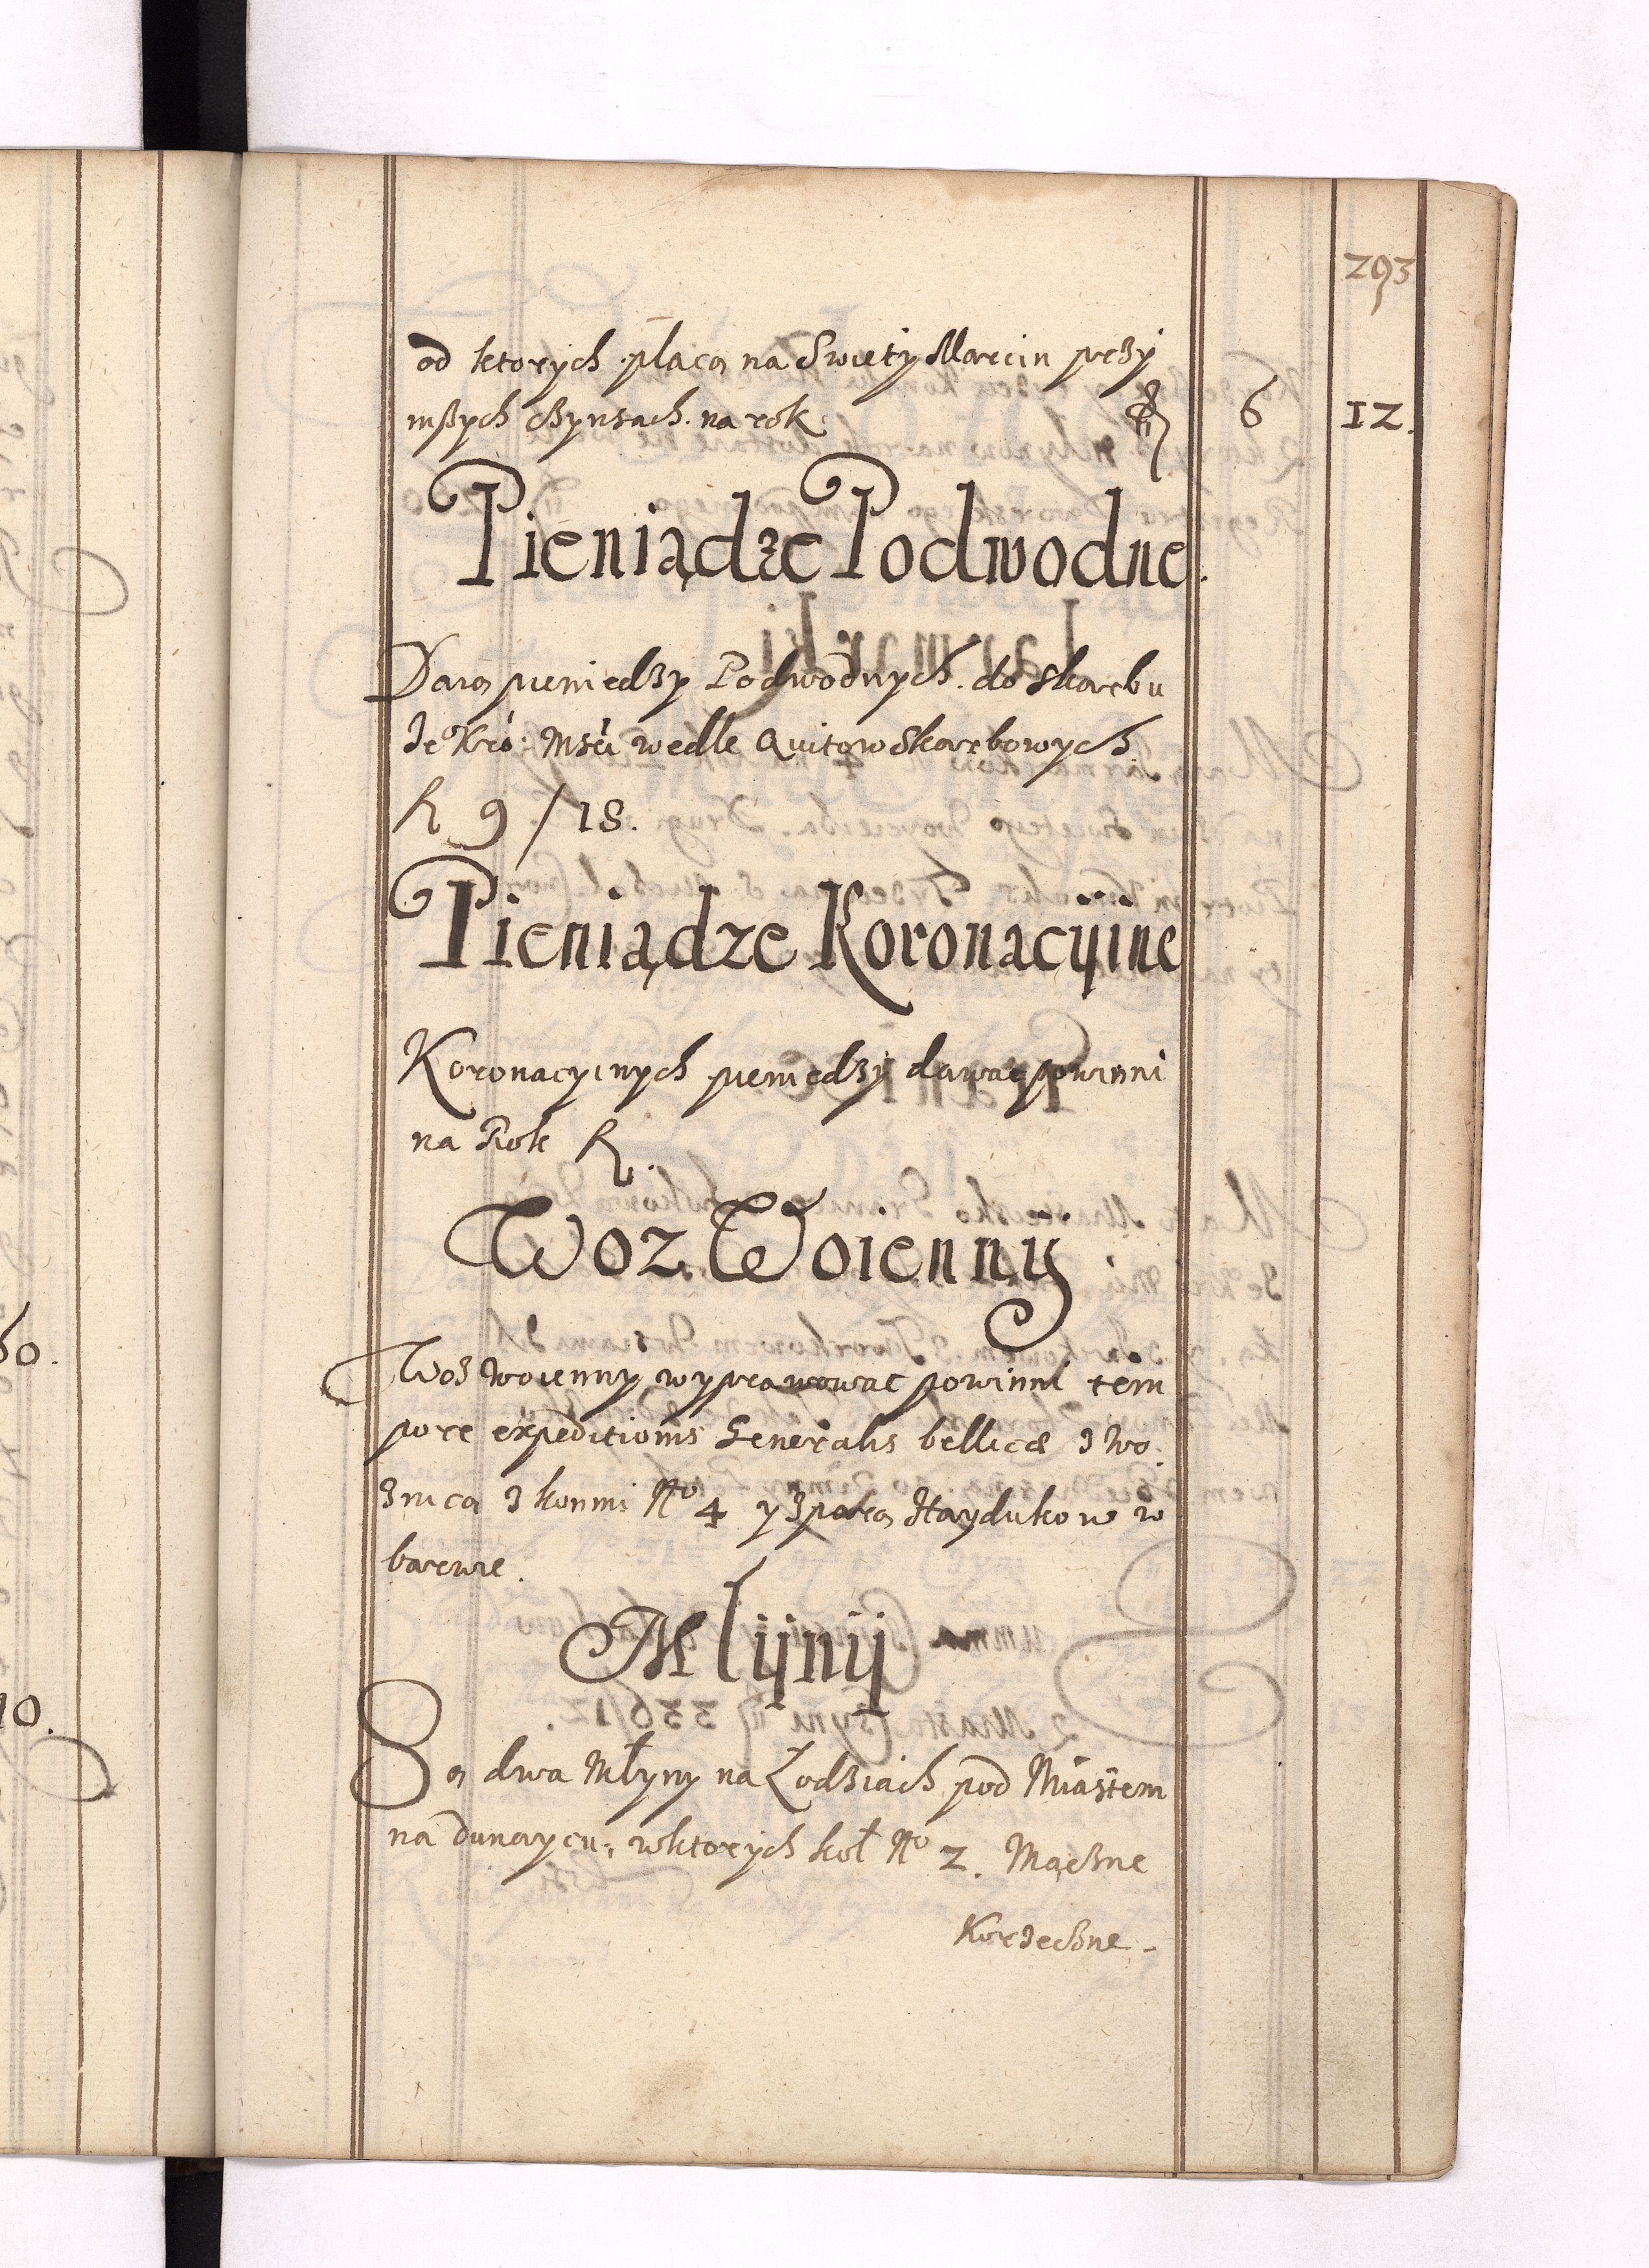 293
od ktorych płacą na Swiety Marcin przÿ
inszych czynszach na rok 6 12.
Pieniądze Podwodne.
Daią pieniedzy Podwodnych do skarbu
Je Kró: Mści wedle Quitow Skarbowych
R 9/18.
Pieniądze Koronacÿine
Koronacyinych pieniedzy dawac powinni
na Rok R.
Woz Woienny
Woz woienny wyprawowac powinni tem
pore expeditionis Generalis bellicæ z wo
znicą z konmi No 4 y zparą Haydukow w
barwie.
Mlÿnÿ
Są dwa Młyny na Łodziach pod Miastem
na dunaycu, wktorych koł No 2. Mączne
Korzeczne
60.
10.